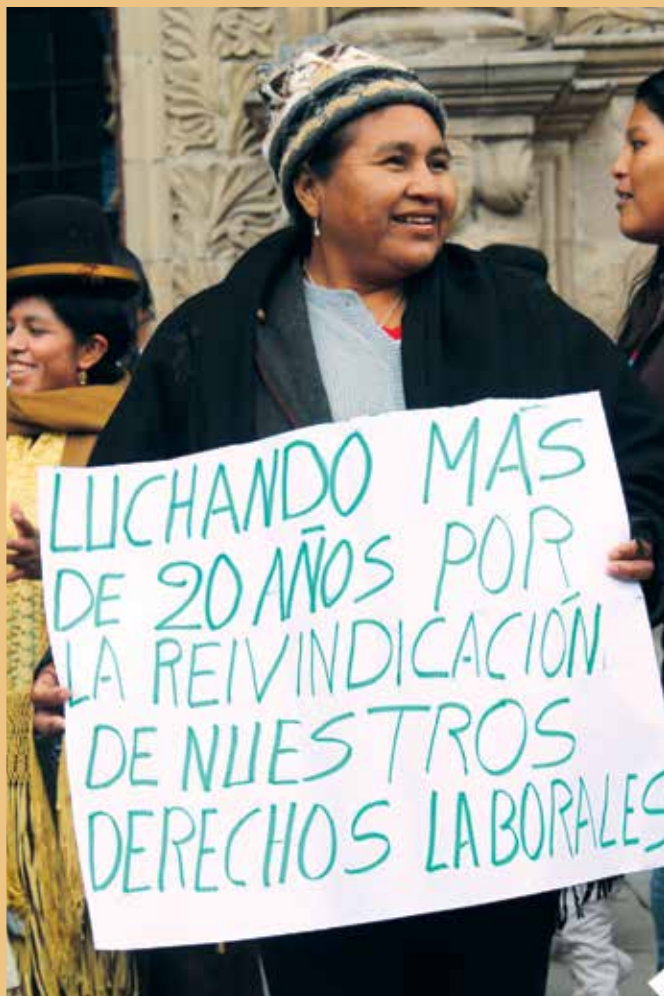 LUCHANDO MÁS
DE 20 AÑOS POR
LA REIVINDICACIÓN
DE NUESTROS
DERECHOS LABORALES